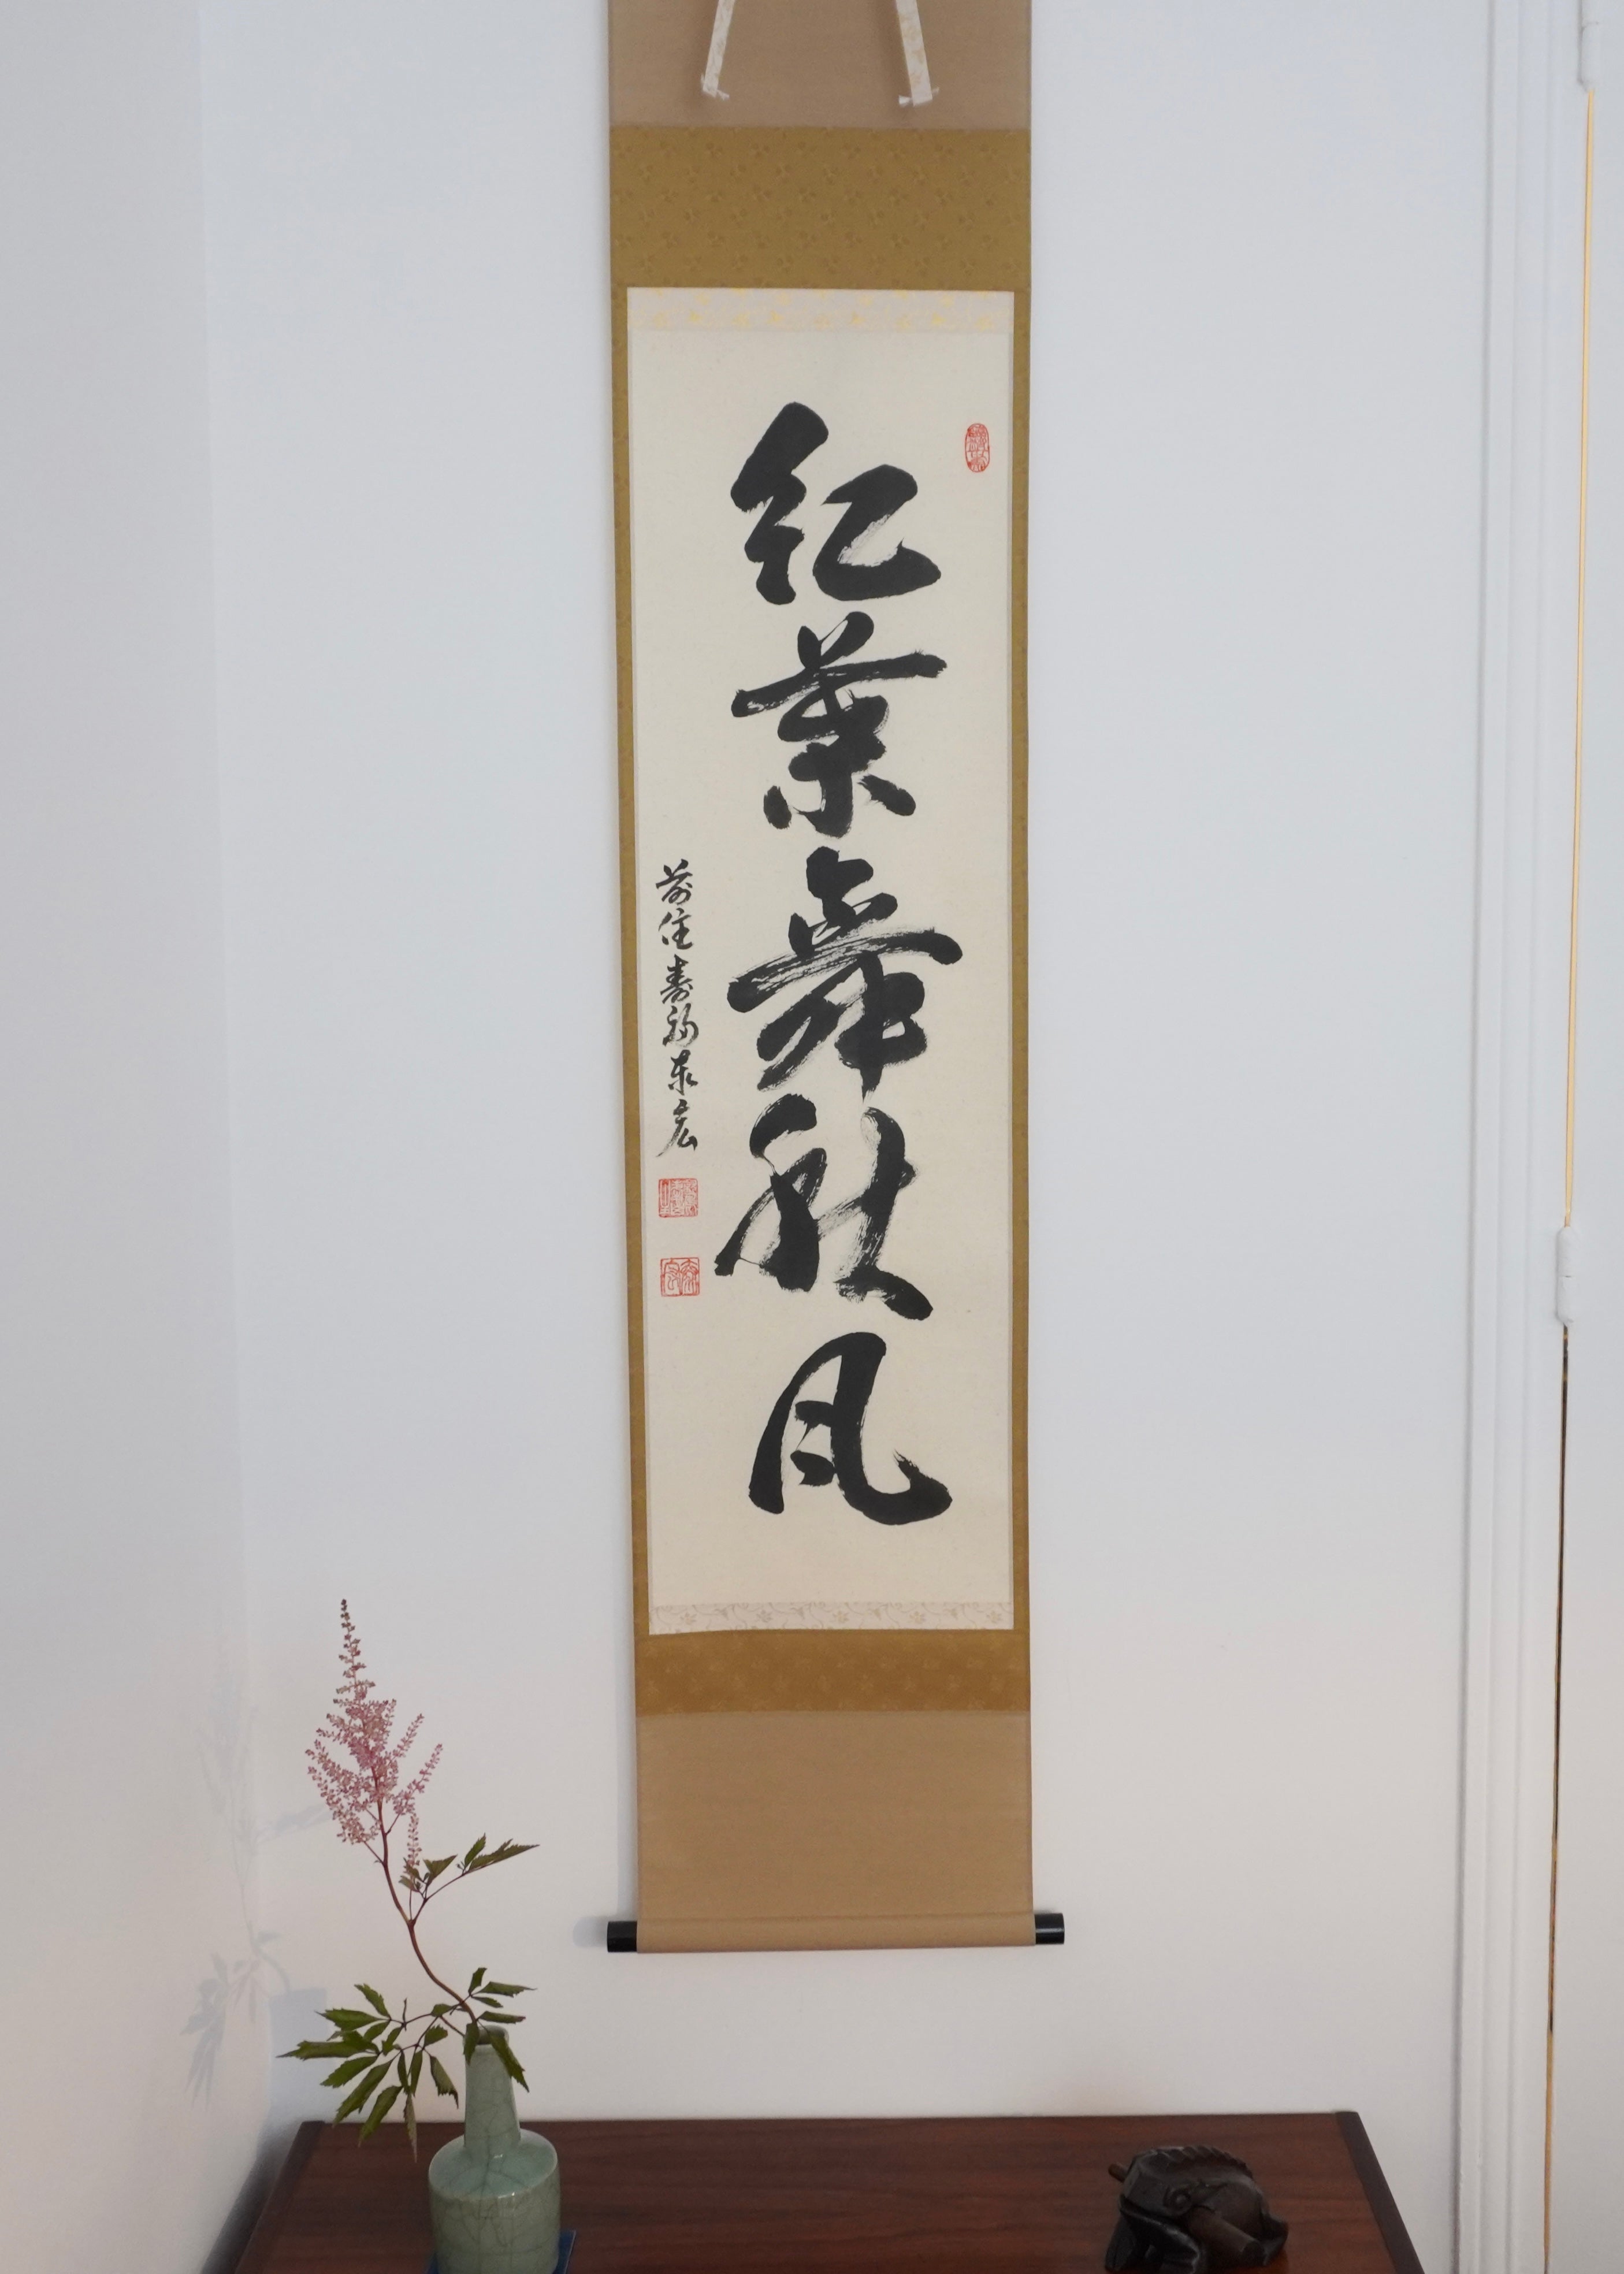 紅葉舞秋風
前住寿福泰宏